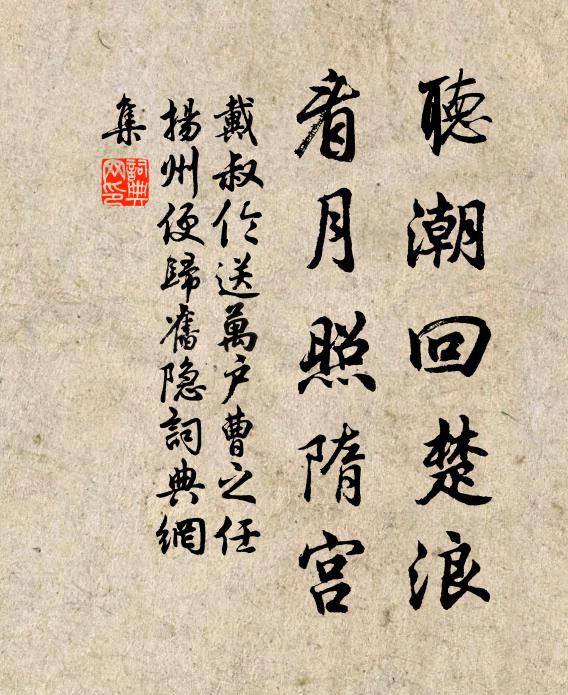 聽潮回楚浪
看月照隋宮
戴叔伦送萬户曹之任
揚州便歸舊隐詞典網
集
詞典网印